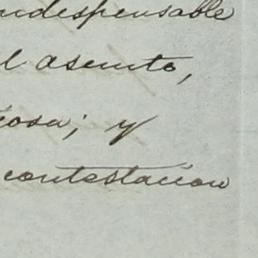 ndispensable
l asunto,
iosa; y
contestacion